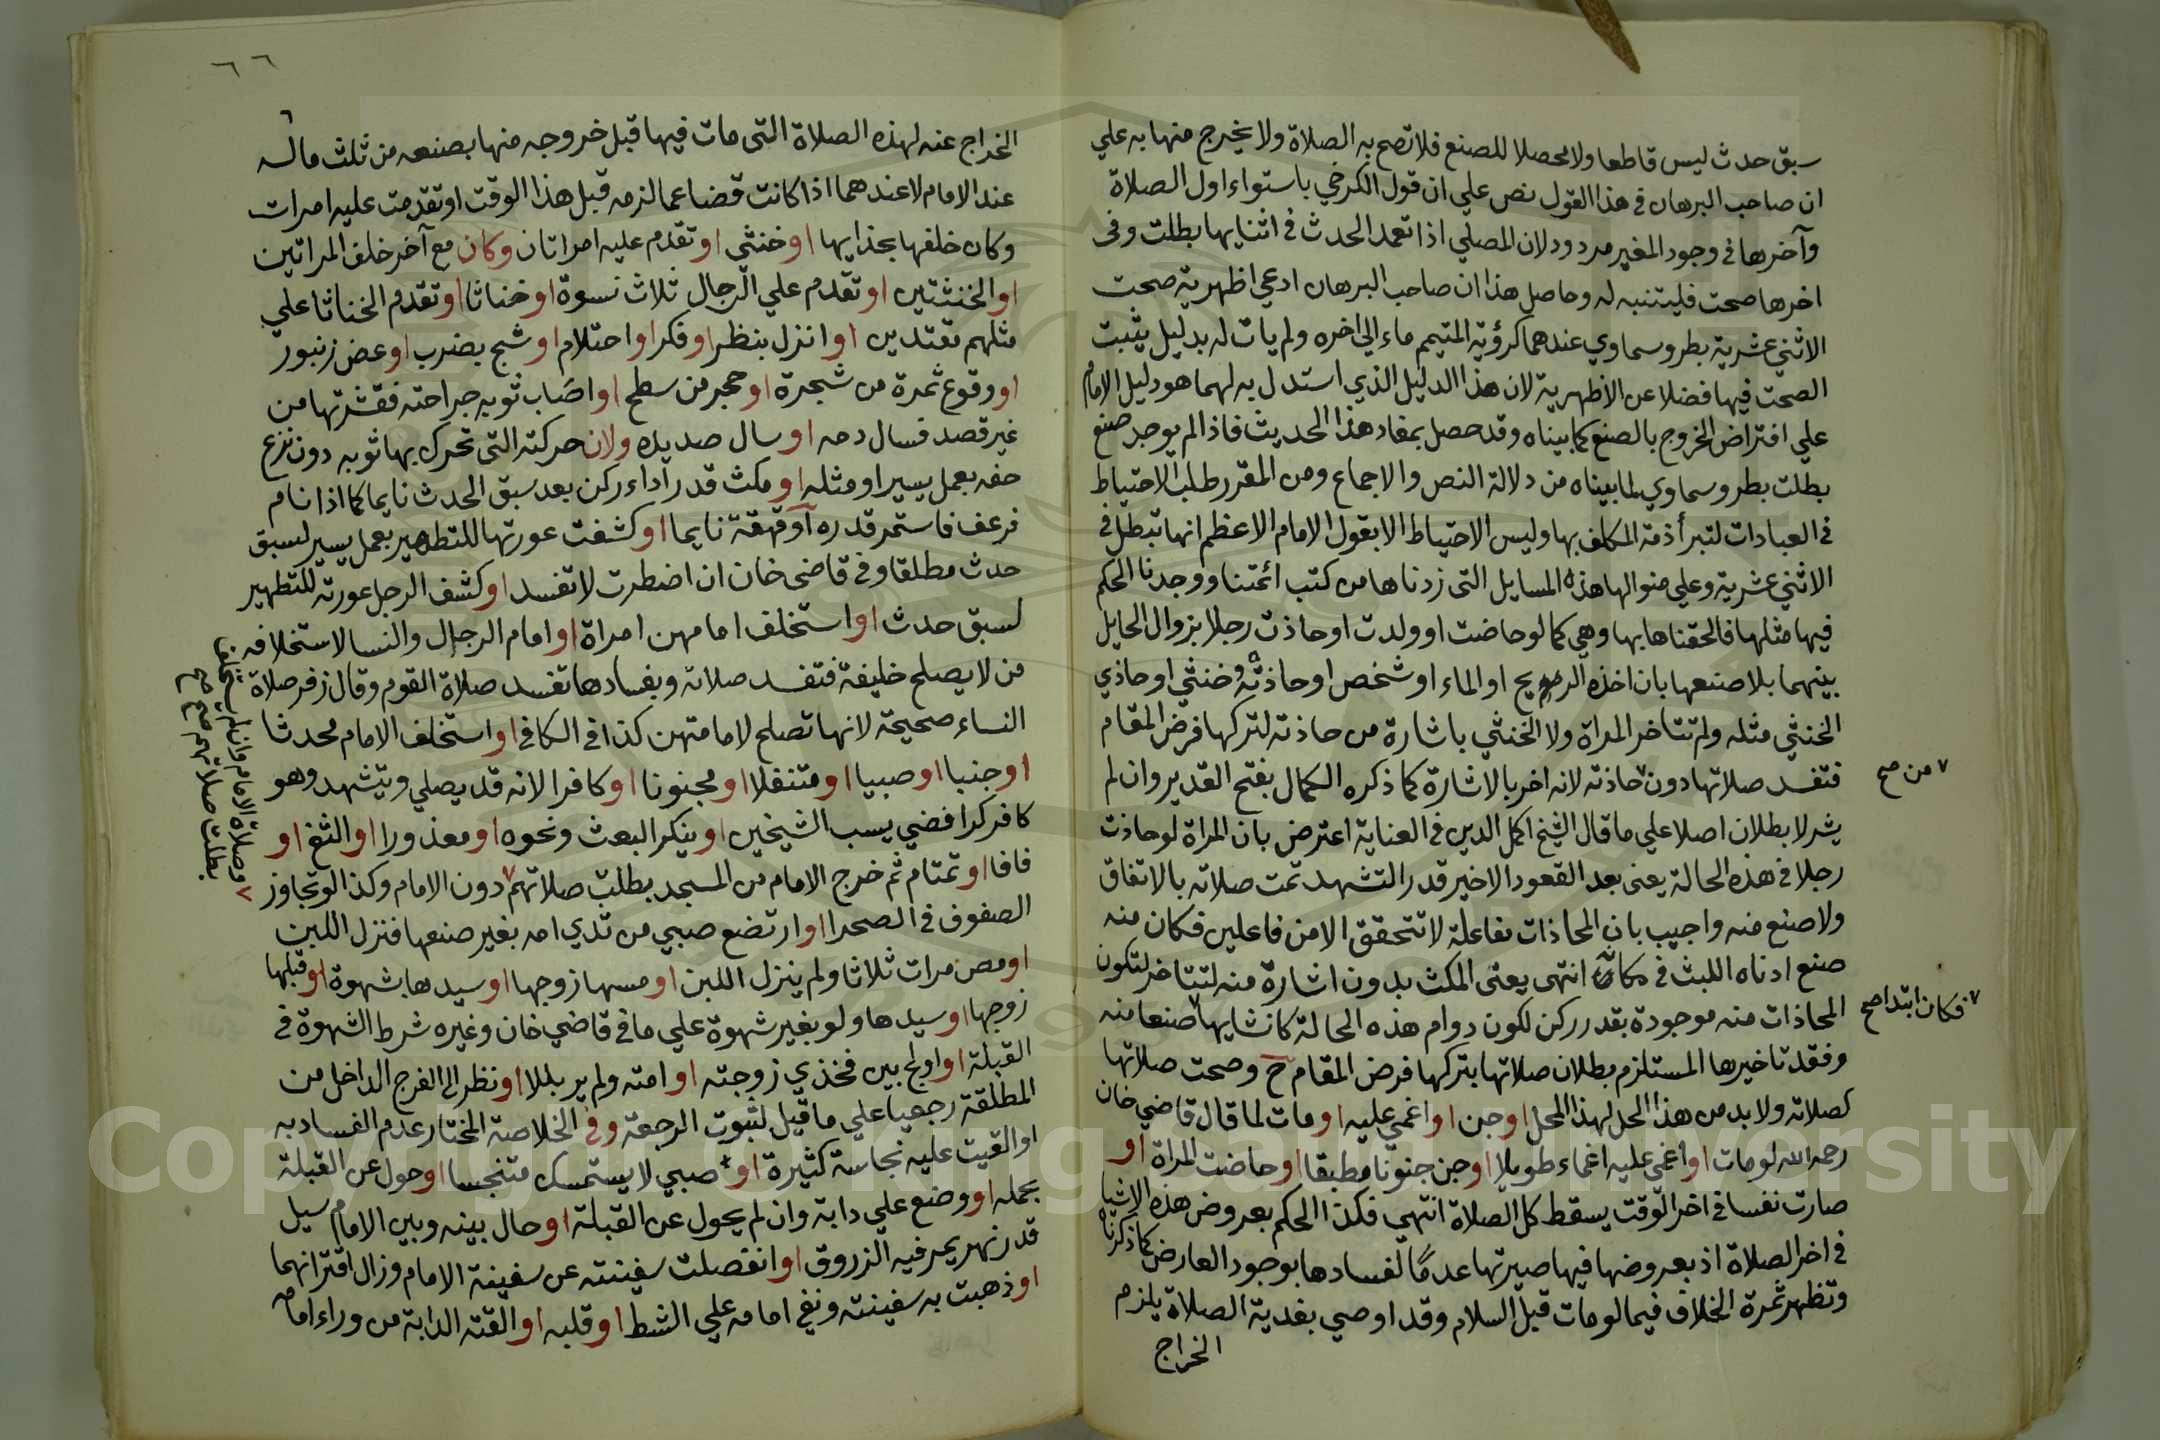 سبق حدث ليس قاطعا ولا محصلا للصنع فلا تصح به الصلاة ولا يخرج منها به علي
ان صاحب البرهان في هذا القول نص علي ان قول الكرخي باستواء اول الصلاة
وآخرها في وجود المغير مردود لان المصلي اذا تعمد الحدث في اثنايها بطلت وفي
اخرها صحت فليتنبه له وحاصل هذا ان صاحب البرهان ادعي اظهرية صحت
الاثني عشرية بطرو سماوي عندهما كرؤية المتيمم ماء الي اخره ولم يات له بدليل يثبت
الصحت فيها فضلا عن الاظهرية لان هذا الدليل الذي استدل به لهما هو دليل الامام
علي افتراض الخروج بالصنع كما بيناه وقد حصل بمفاد هذا الحديث فاذا لم يوجد صنع
بطلت بطرو سماوي لما بيناه من دلالة النص والاجماع ومن المقرر طلب الاحتياط
في العبادات لتبرأ ذمة المكلف بها وليس الاحتياط الا بقول الامام الاعظم انها تبطل في
الاثني عشرية وعلي منوالها هذه المسايل التي زدناها من كتب ائمتنا ووجدنا الحكم
فيها مثلها فالحقناها بها وهي كما لو حاضت او ولدت او حاذت رجلا بزوال الحايل
بينهما بلا صنعها بان اخذه الريح او الماء او شخص او حاذته خنثي او حاذي
الخنثي مثله ولم تتاخر المراة ولا الخنثي باشارة من حاذته لتركها فرض المقام
فتفسد صلاتها دون حاذته لانه اخر بالاشارة كما ذكره الكمال بفتح القدير وان لم
٧ من صح
يشر لا بطلان اصلا علي ما قال الشيخ اكمل الدين في العناية اعترض بان المراة لو حاذت
رجلا في هذه الحالة يعني بعد القعود الاخير قدر التشهد تمت صلاته بالاتفاق
ولا صنع منه واجيب بان المحاذات مفاعلة لا تتحقق الا من فاعلين فكان منه
صنع ادناه اللبث في مكانه انتهي يعني المكث بدون اشارة منه لتتاخر لتكون
المحاذات منه موجودة بقدر ركن لكون دوام هذه الحالة كانشايها ٧ صنعا منه
٧ فكان ابتدا صح
وفقد تاخيرها المستلزم بطلان صلاتها بتركها فرض المقام ح وصحت صلاتها
كصلاته ولا بد من هذا الحل لهذا المحل او جن او اغمي عليه او مات لما قال قاضي خان
رحمه الله لو مات او اغمي عليه اغماء طويلا او جن جنونا مطبقا او حاضت المراة او
صارت نفسا في اخر الوقت يسقط كل الصلاة انتهي فكذا الحكم بعروض هذه الاشياء
في اخر الصلاة اذ بعروضها فيها صيرتها عدما لفسادها بوجود العارض كما ذكرناه
وتظهر ثمرة الخلاف فيما لو مات قبل السلام وقد اوصي بفدية الصلاة يلزم
الخراج
٦٦
الخراج عنه لهذه الصلاة التي مات فيها قبل خروجه منها بصنعه من ثلث ماله
عند الامام لا عندهما اذا كانت قضا عما لزمه قبل هذا الوقت او تقدمت عليه امرات
وكان خلفها بحذايها او خنثي او تقدم عليه امراتان وكان مع آخر خلف المراتين
او الخنثتين او تقدم علي الرجال ثلاث نسوة او خناثا او تقدم الخناثا علي
مثلهم مقتدين او انزل بنظر او فكر او احتلام او شج بضرب او عض زنبور
او وقوع ثمرة من شجرة او حجر من سطح او اصاب ثوبه جراحته فقشرتها من
غير قصد فسال دمه او سال صديده ولان حركته التي تحرك بها ثوبه دون نزع
خفه بعمل يسير او مثله او مكث قدر اداء ركن بعد سبق الحدث نايما كما اذا نام
فرعف فاستمر قدره او قهقة نايما او كشفت عورتها للتطهير بعمل يسير لسبق
حدث مطلقا وفي قاضي خان ان اضطرت لا تفسد او كشف الرجل عورته للتطهير
لسبق حدث او استخلف امامهن امراة او امام الرجال والنسا لاستخلافه
من لا يصلح خليفة فتفسد صلاته وبفسادها تفسد صلاة القوم وقال زفر صلاة
النساء صحيحة لانها تصلح لامامتهن كذا في الكافي او استخلف الامام محدثا
او جنبا او صبيا او متنفلا او مجنونا او كافرا لانه قد يصلي ويتشهد وهو
كافر كرافضي يسب الشيخين او ينكر البعث ونحوه او معذورا او الثغ او
فافا او تمتام ثم خرج الامام من المسجد بطلت صلاتهم ٧ دون الامام وكذا لو تجاوز
٧ وصلاة الامام وان لم يستخلف
بطلت صلاتهم صح صح
الصفوف في الصحرا او ارتضع صبي من ثدي امه بغير صنعها فنزل اللبن
او مص مرات ثلاثا ولم ينزل اللبن او مسها زوجها او سيدها بشهوة او قبلها
زوجها او سيدها ولو بغير شهوة علي ما في قاضي خان وغيره شرط الشهوة في
القبلة او اولج بين فخذي زوجته او امته ولم ير بللا او نظر الي الفرج الداخل من
المطلقة رجعيا علي ما قيل لثبوت الرجعة وفي الخلاصة المختار عدم الفساد به
او القيت عليه نجاسة كثيرة او صبي لا يستمسك متنجسا او حول عن القبلة
بحمله او وضع علي دابة وان لم يحول عن القبلة او حال بينه وبين الامام سيل
قدر نهر يمر فيه الزروق او انفصلت سفينته عن سفينة الامام وزال اقترانهما
او ذهبت به سفينته وبقي امامه علي الشط او قلبه او القته الدابة من وراء امامه